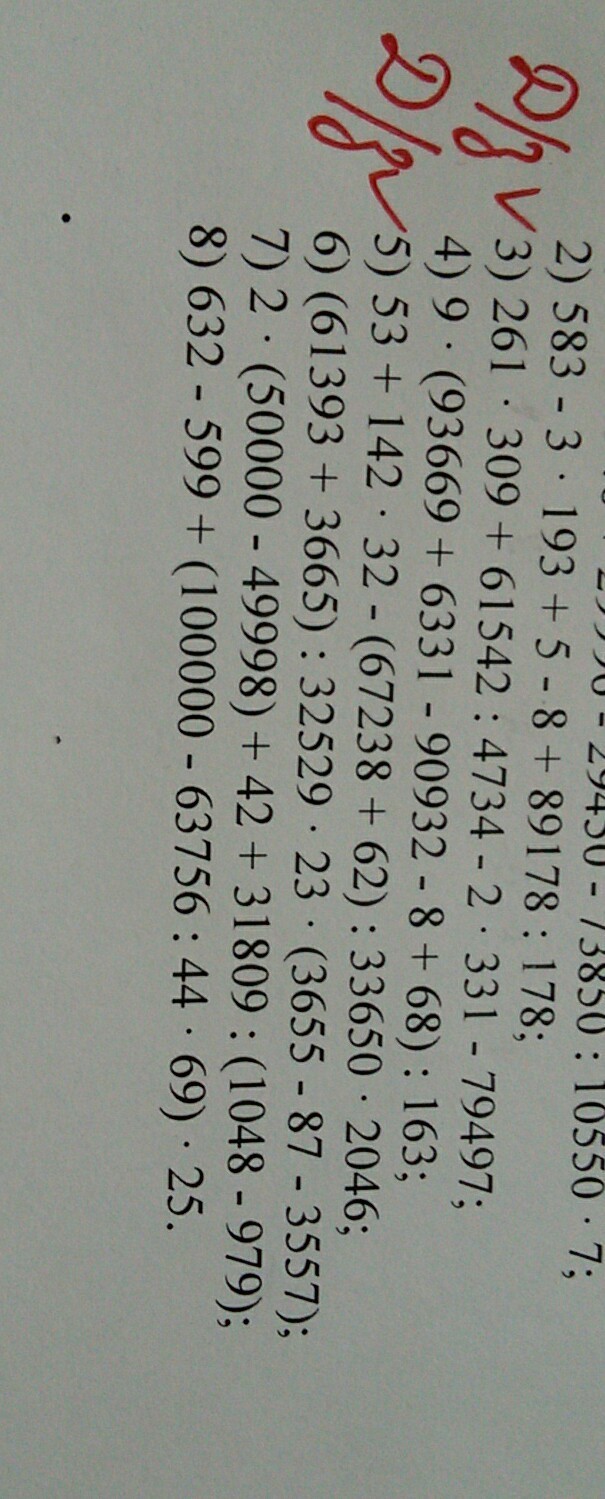 29450 - 73850 : 10550 · 7;
2) 583 - 3 · 193 + 5 - 8 + 89178 : 178;
Д/з 3) 261 · 309 + 61542 : 4734 - 2 · 331 - 79497;
4) 9 · (93669 + 6331 - 90932 - 8 + 68) : 163;
Д/з 5) 53 + 142 · 32 - (67238 + 62) : 33650 · 2046;
6) (61393 + 3665) : 32529 · 23 · (3655 - 87 - 3557);
7) 2 · (50000 - 49998) + 42 + 31809 : (1048 - 979);
8) 632 - 599 + (100000 - 63756 : 44 · 69) · 25.